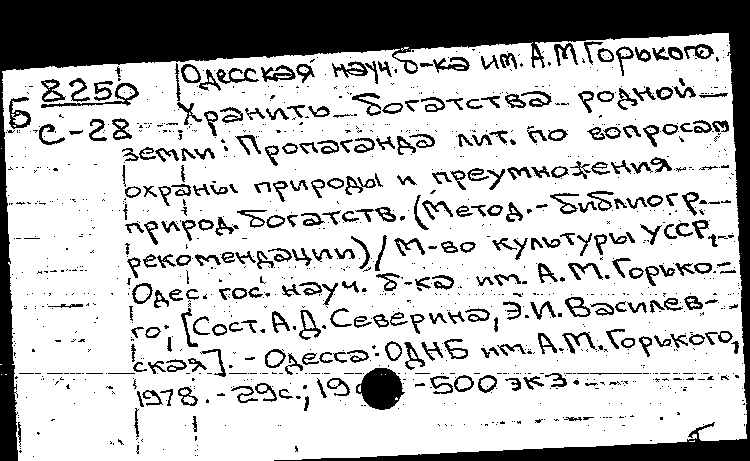 Одесская науч. б-ка им. А.М.Горького.
Б 8250
с-28
Хранить богатства родной
земли: Пропаганда лит. по вопросам
охраны природы и преумножения
природ. богатств. (Метод.-библиогр.
рекомендации) / М-во культуры УССР,
Одес. гос. науч. б-ка им. А.М.Горько=
го; [Сост. А.Д.Северина, Э.И.Василев-
ская]. - Одесса: ОДНБ им. А.М.Горького,
1978. - 29с.; - 500 экз.